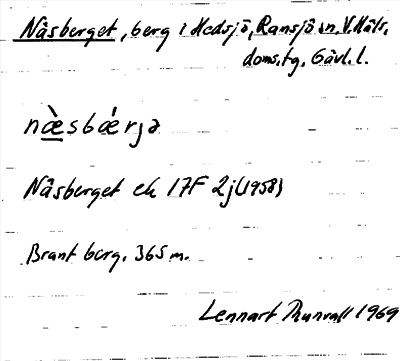 Näsberget, berg i Hedsjö, Ransjö sn, V. Häls.
doms.tg, Gävl. l.
næ̀sbǽrjə
Näsberget ek 17F 2j (1958)
Brant berg. 365 m.
Lennart Thunvall 1969